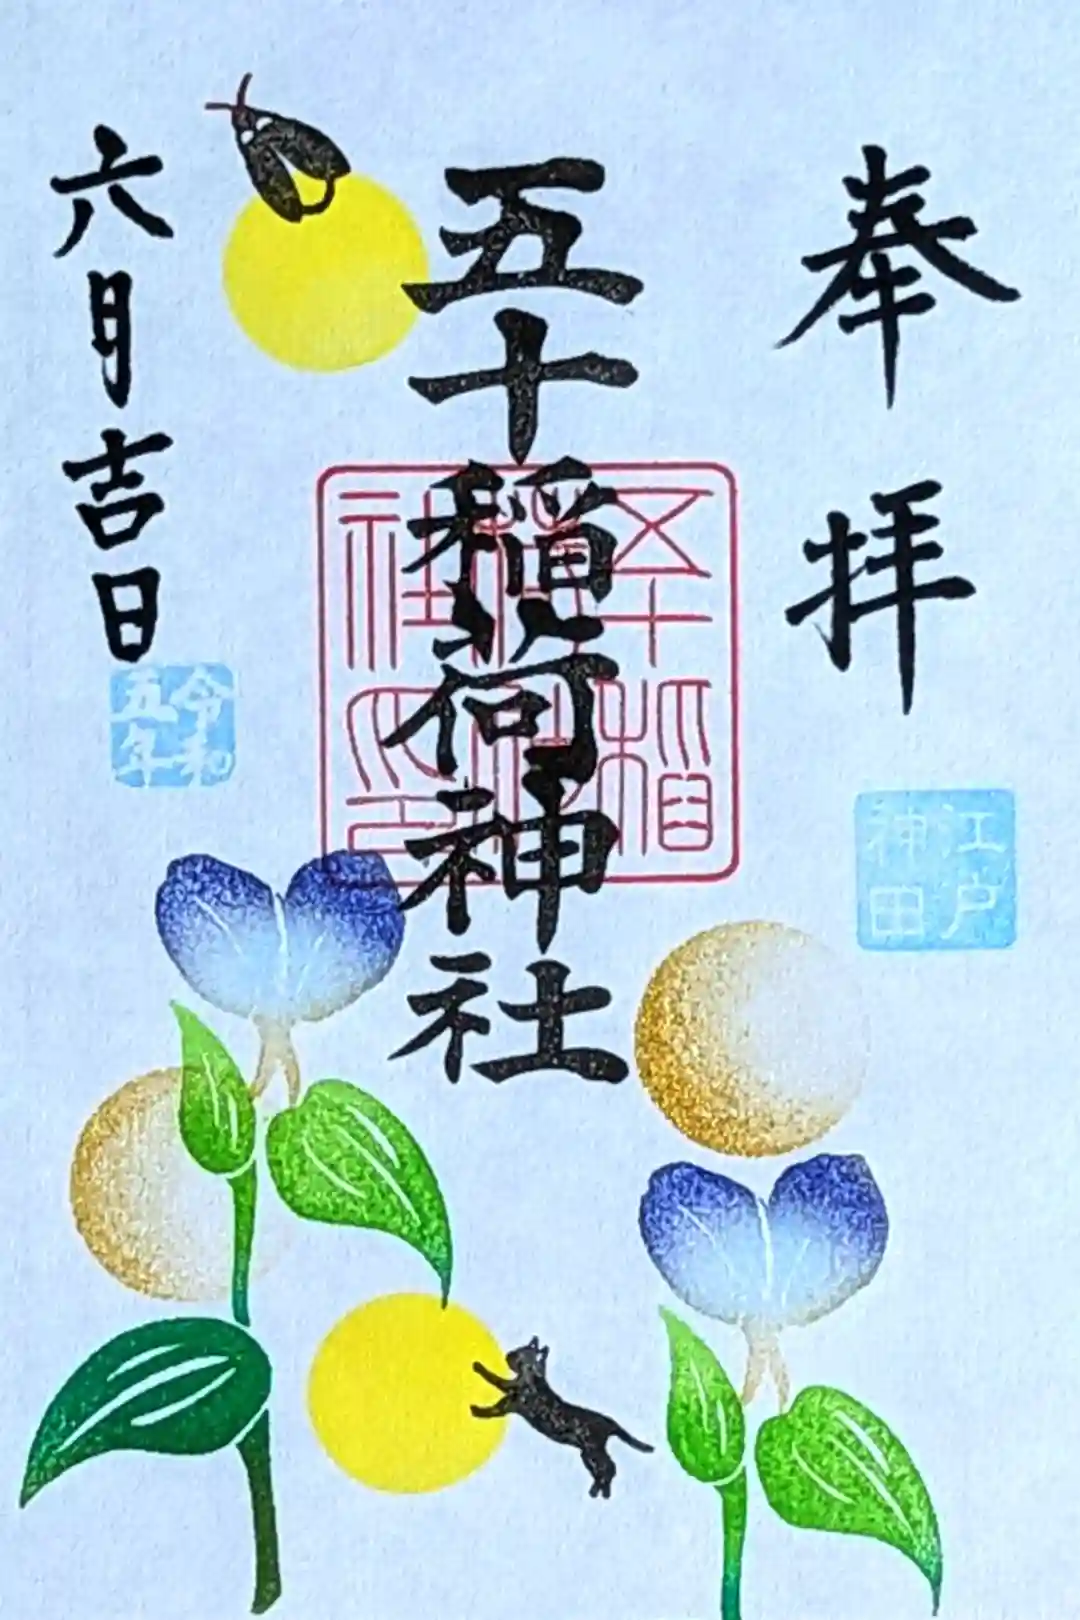 奉拝
江戸
神田
五十稲荷神社
五十稲
荷神
社之印
六月吉日
令和
五年